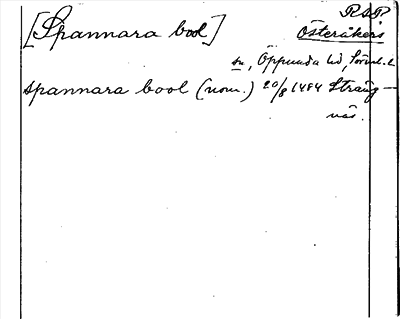 RAP
[Spannara bool] Österåkers
sn, Oppunda hd, Söderm. l.
spannara bool (nom.) 20/8 1484 Sträng-
näs.